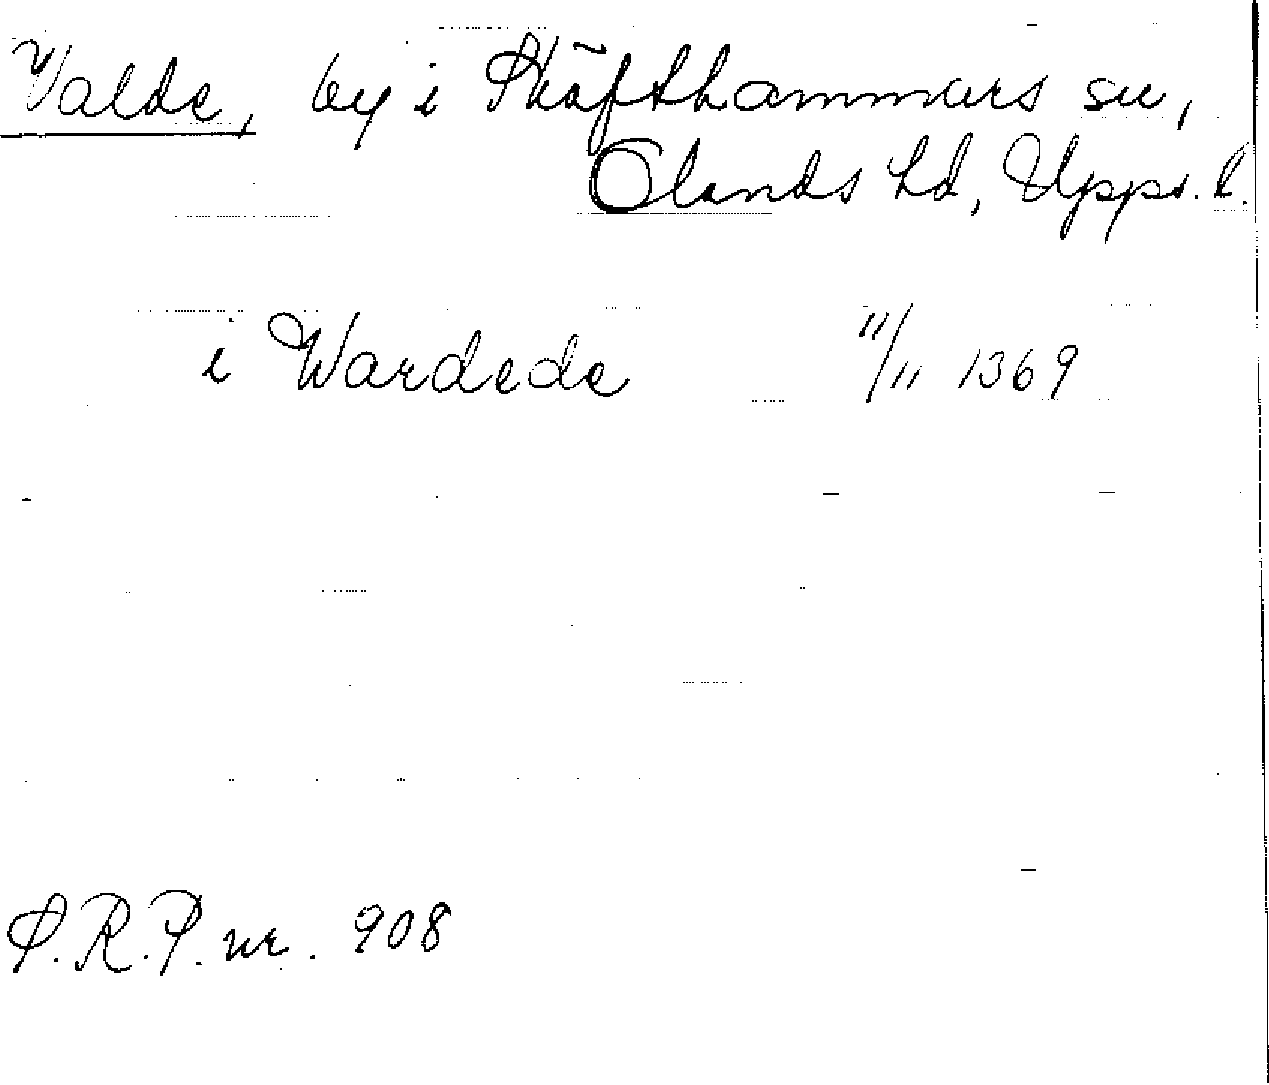 Valde, by i Skäfthammars sn,
Olands hd, Upps. l.
i Wardede 11/11 1369
S.R.P. nr. 908